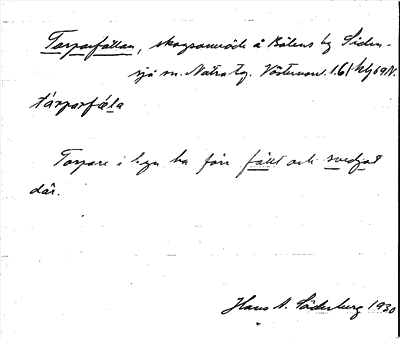 Torparfällan, skogsområde å Bölens by Siden-
sjö sn. Nätra tg. Västernorrl. l.
tårparfæla
Torpare i byn ha förr fällt och svedjat
där.
Hans A. Söderberg 1930